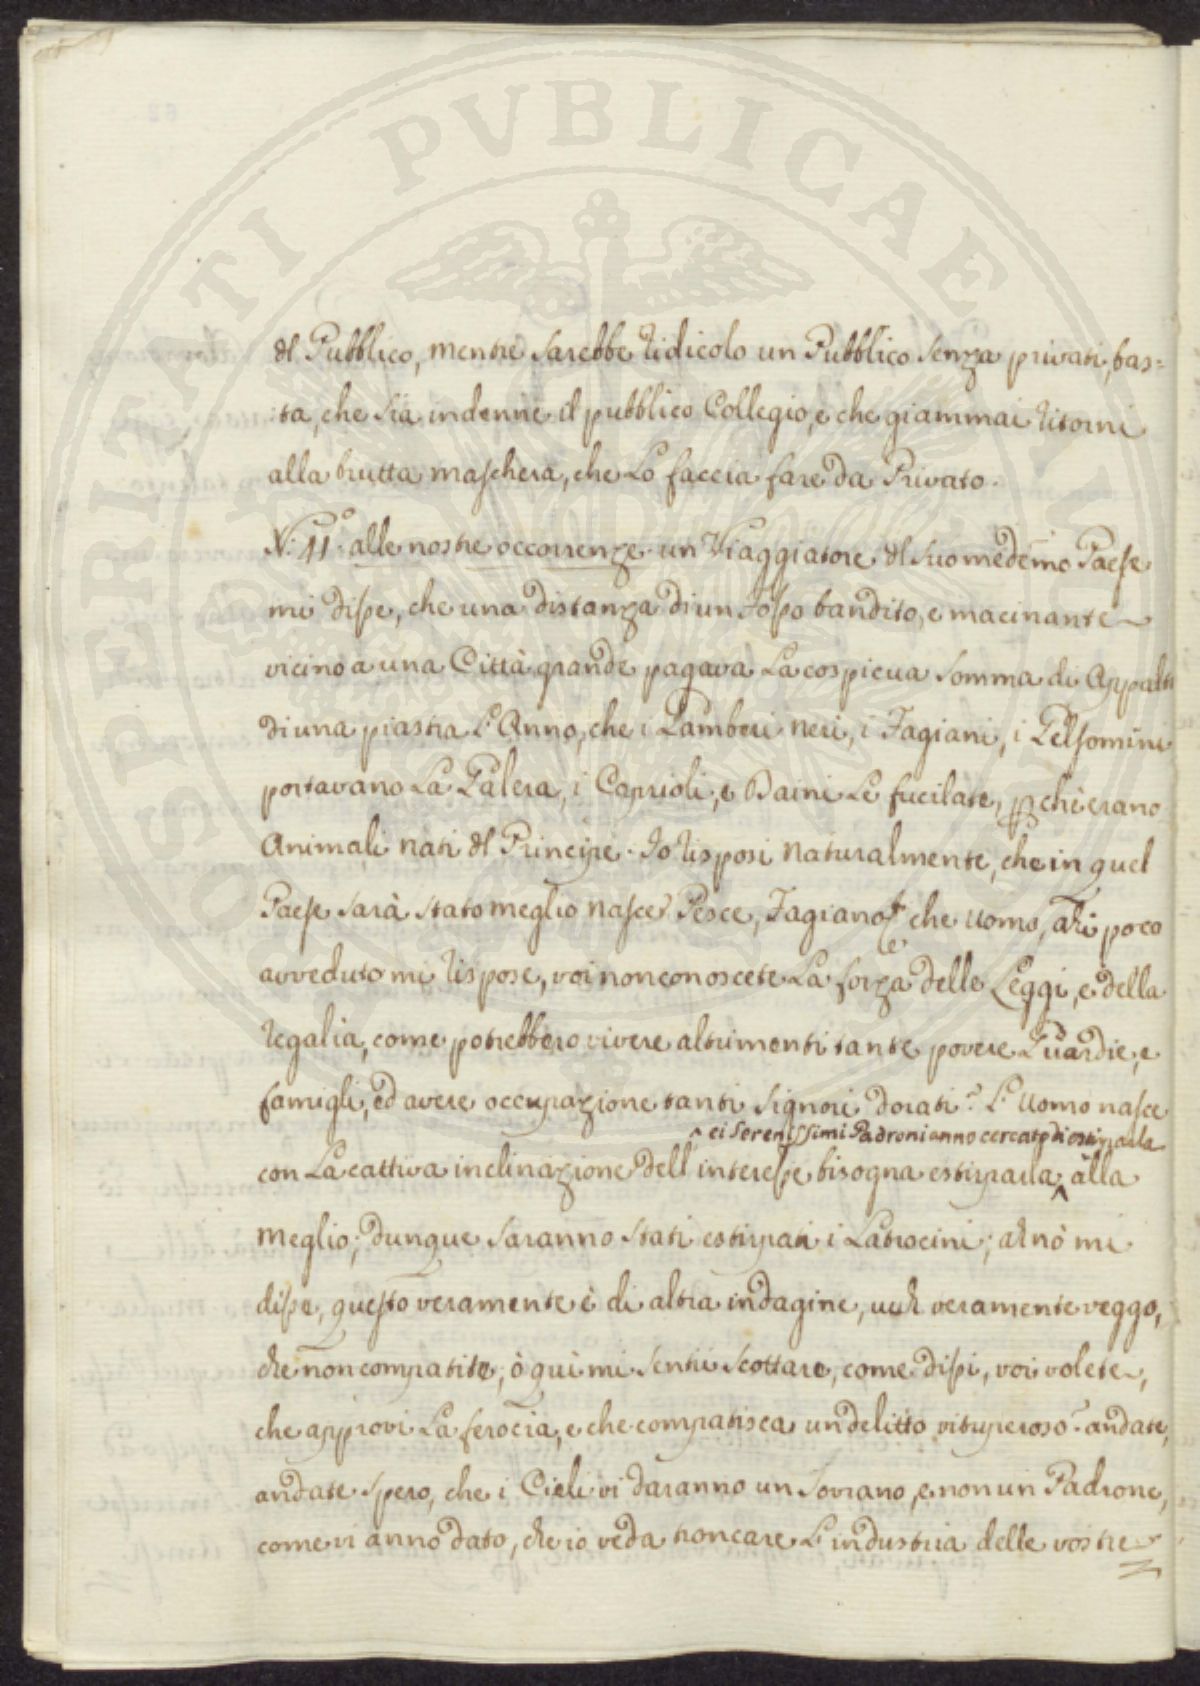 PROSPERITATI PUBLICAE AU
del Pubblico, mentre sarebbe ridicolo un Pubblico senza privati, bas=
ta, che sia indenne il pubblico Collegio, e che giammai ritorni
alla brutta maschera, che Lo faccia fare da Privato.
N.° 11.° alle nostre occorrenze un Viaggiatore del suo medemo Paese
mi disse, che una distanza di un Fosso bandito, e macinante
vicino a una Città grande pagava La cospicua somma di Appalto
di una piastra L'Anno, che i Gamberi neri, i Fagiani, i Gelsomini
portavano La Galera, i Caprioli, e Daini Le fucilate, perchè erano
Animali nati del Principe. Io risposi naturalmente, che in quel
Paese sarà stato meglio nascer Pesce, Fagiano che Uomo, ah poco
avveduto mi rispose, voi non conoscete La forza delle Leggi, e della
regalia, come potrebbero vivere altrimenti tante povere Guardie, e
famigli, ed avere occupazione tanti signori dorati? L'Uomo nasce
^ e i Serenissimi Padroni anno cercato di estirparla
con La cattiva inclinazione dell'interesse bisogna estirparla ^ alla
meglio; dunque saranno stati estirpati i Latrocini; ah nò mi
disse, questo veramente è di altra indagine, veramente veggo,
che non compatite; ò quì mi sentii scottare, come dissi, voi volete,
che approvi La ferocia, e che compatisca un delitto vituperoso? andate,
andate spero, che i Cieli vi daranno un Sovrano, e non un Padrone,
come vi anno dato, che io veda troncare L'industria delle vostre